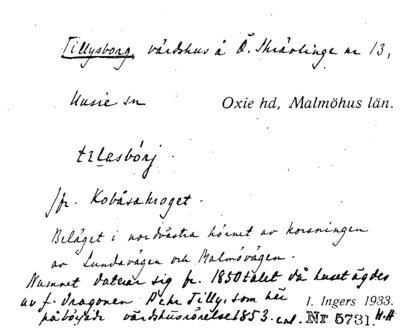 Tillysborg, värdshus å Ö. Skrävlinge nr 13,
Husie sn Oxie hd, Malmöhus län.
tılasbórj.
Jfr. Kobåsakroget.
Beläget i nordvästra hörnet av korsningen
av Lundavägen och Malmövägen.
Namnet daterar sig fr. 1850talet då huset ägdes
av f. dragonen Pehr Tilly, som här I. Ingers 1933.
påbörjade värdshusrörelse 1853. enl. Nr 5731 H-H